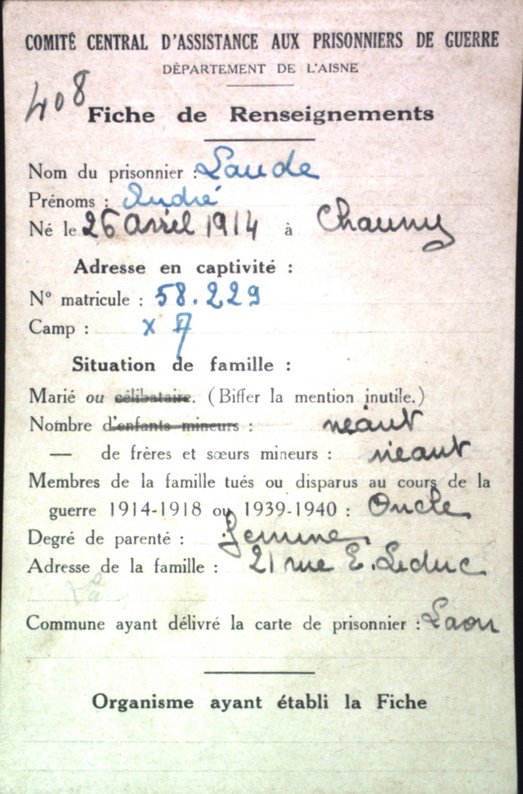 COMITÉ CENTRAL D'ASSISTANCE AUX PRISONNIERS DE GUERRE
DÉPARTEMENT DE L'AISNE
408
Fiche de Renseignements
Nom du prisonnier : Laude
Prénoms : André
Né le 26 avril 1914 à Chauny
Adresse en captivité :
N° matricule : 58.229
Camp : X A
Situation de famille :
Marié ou célibataire. (Biffer la mention inutile.)
Nombre d'enfants mineurs : néant
— de frères et sœurs mineurs : néant
Membres de la famille tués ou disparus au cours de la
guerre 1914-1918 ou 1939-1940 : Oncle
Degré de parenté : femme
Adresse de la famille : 21 rue E. Leduc
Commune ayant délivré la carte de prisonnier : Laon
Organisme ayant établi la Fiche